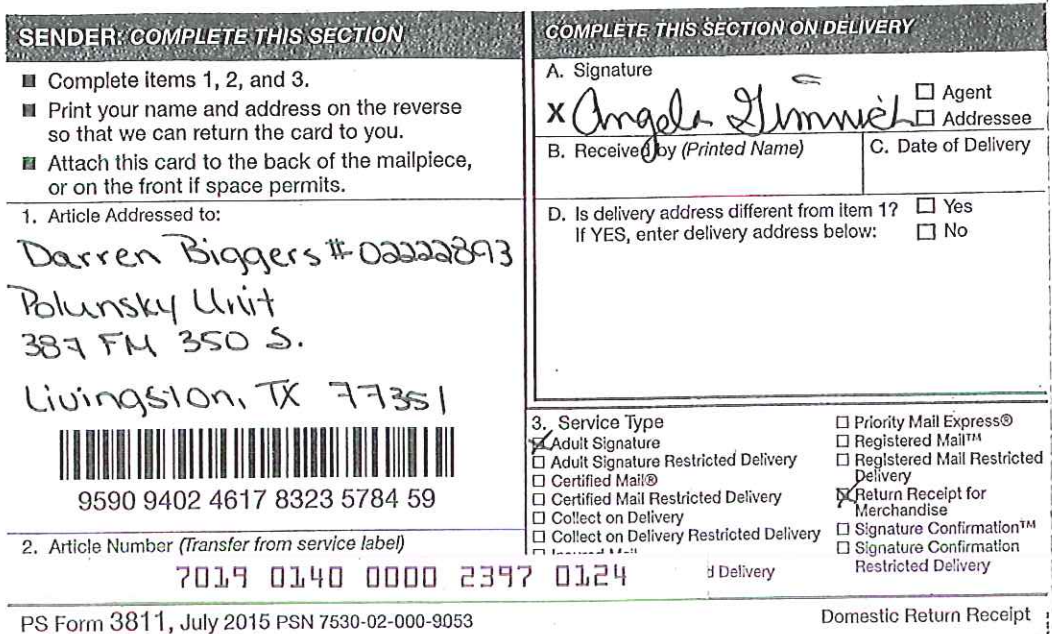 SENDER: COMPLETE THIS SECTION
■ Complete items 1, 2, and 3.
■ Print your name and address on the reverse
so that we can return the card to you.
■ Attach this card to the back of the mailpiece,
or on the front if space permits.
1. Article Addressed to:
Darren Biggers # 02222893
Polunsky Unit
387 FM 350 S.
Livingston, TX 77351
9590 9402 4617 8323 5784 59
2. Article Number (Transfer from service label)
7019 0140 0000 2397 0124
COMPLETE THIS SECTION ON DELIVERY
A. Signature
X Angela
☐ Agent
☐ Addressee
B. Received by (Printed Name)
C. Date of Delivery
D. Is delivery address different from item 1? ☐ Yes
If YES, enter delivery address below: ☐ No
3. Service Type
☒ Adult Signature
☐ Adult Signature Restricted Delivery
☐ Certified Mail®
☐ Certified Mail Restricted Delivery
☐ Collect on Delivery
☐ Collect on Delivery Restricted Delivery
d Delivery
☐ Priority Mail Express®
☐ Registered Mail™
☐ Registered Mail Restricted
Delivery
☒ Return Receipt for
Merchandise
☐ Signature Confirmation™
☐ Signature Confirmation
Restricted Delivery
PS Form 3811, July 2015 PSN 7530-02-000-9053
Domestic Return Receipt